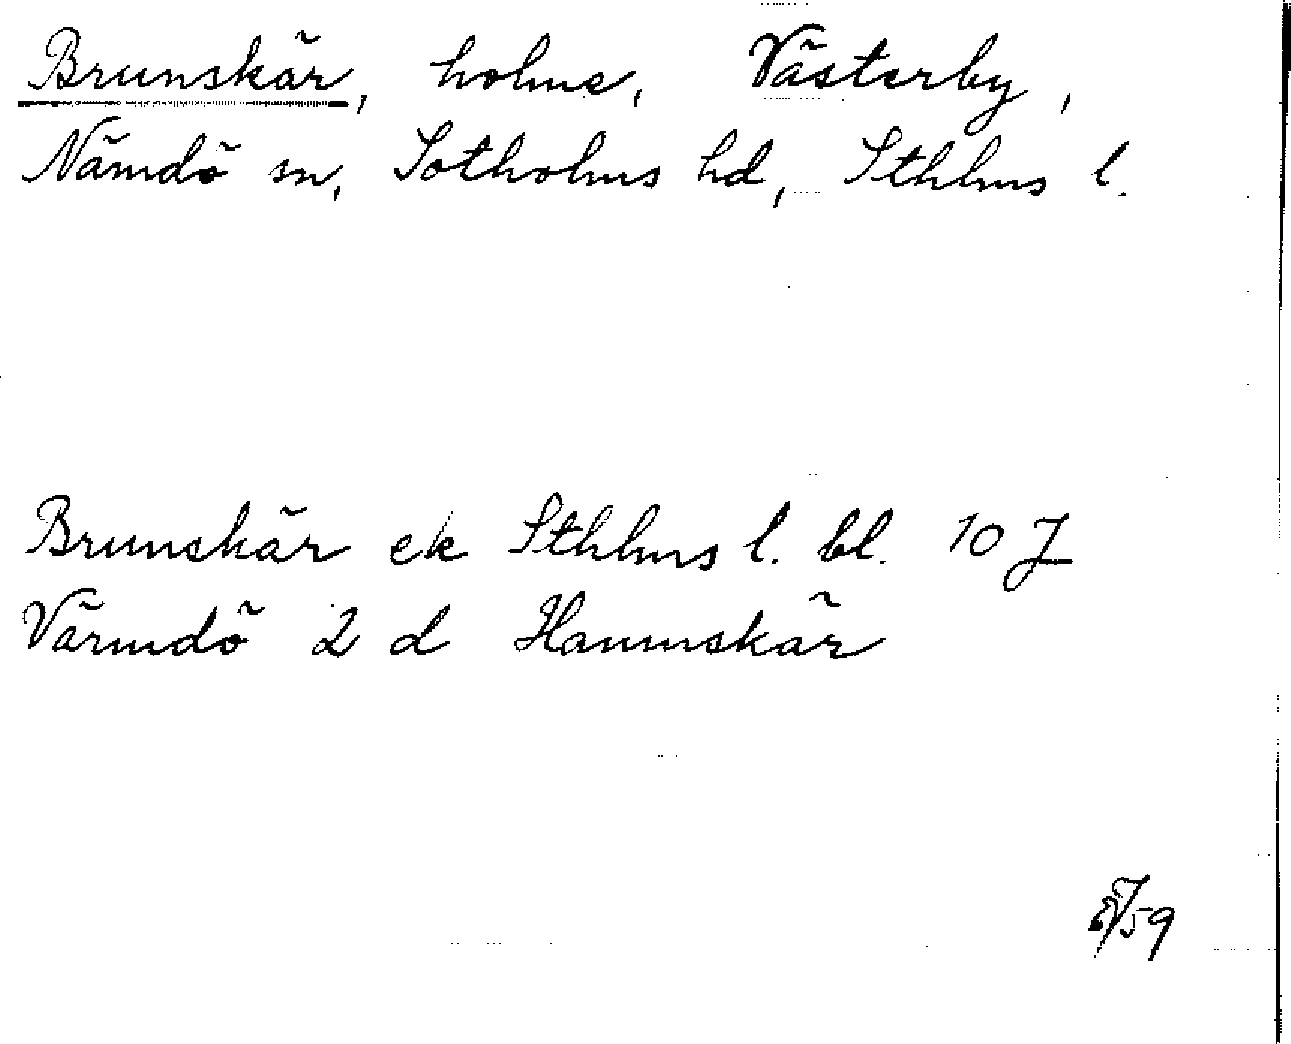 Brunskär, holme, Västerby,
Nämdö sn, Sotholms hd, Sthlms l.
Brunskär ek Sthlms l. bl. 10 J
Värmdö 2 d Hamnskär
59